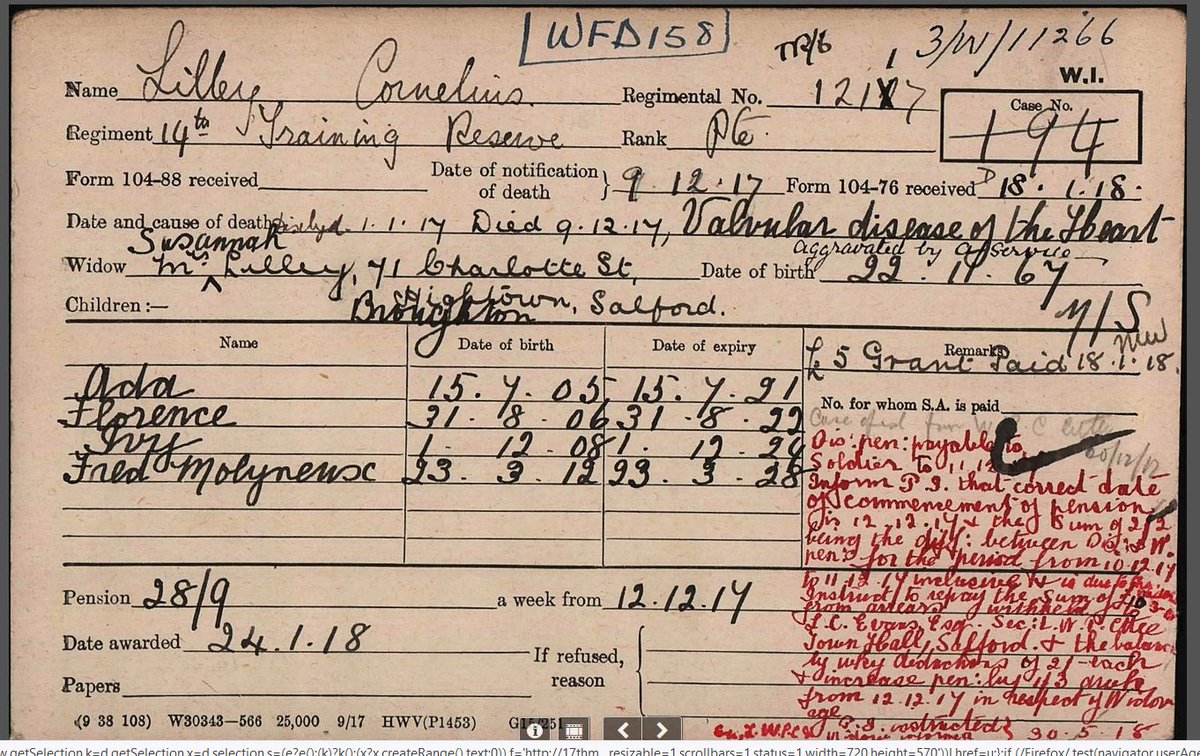 WFD158
TR/6
3/W/11266
W.I.
Name Lilley Cornelius Regimental No. 12117
Case No. 194
Regiment 14th Training Reserve Rank Pte.
Form 104-88 received Date of notification of death } 9.12.17 Form 104-76 received 18.1.18.
Date and cause of death 1.1.17 Died 9.12.17, Valvular disease of the Heart
aggravated by service
Susannah
Widow Mrs Lilley, 71 Charlotte St, Date of birth 22.11.67
Hightown, Salford.
Broughton
Children :— M/S
Name Date of birth Date of expiry Remarks
£5 Grant Paid 18.1.18.
Ada 15.7.05 15.7.21
No. for whom S.A. is paid
Florence 31.8.06 31.8.22
Ivy 1.12.08 1.12.24
Fred Molyneux 23.3.12 23.3.28
Dis: pen: payable to
Soldier to 11.12
Inform P.I. that correct date
of commencement of pension
is 12.12.17 & the sum of 2/2
being the diff: between Dis: & W.
pen: for the period from 10.12.17
to 11.12.17 inclusive is due to
Instruct to repay the sum of £10
from arrears withheld to
L.C. Evans Esq. Sec: L.W.P. Cttee
Town Hall, Salford. & the balance
by wkly deductions of 2/- each
& increase pen: by 1/3 a week
from 12.12.17 in respect of Widow
age
P.I. instructed
30.5.18
Pension 28/9 a week from 12.12.17
Date awarded 24.1.18
If refused, reason
Papers
(9 38 103) W30343—566 25,000 9/17 HWV(P1453) G15/251